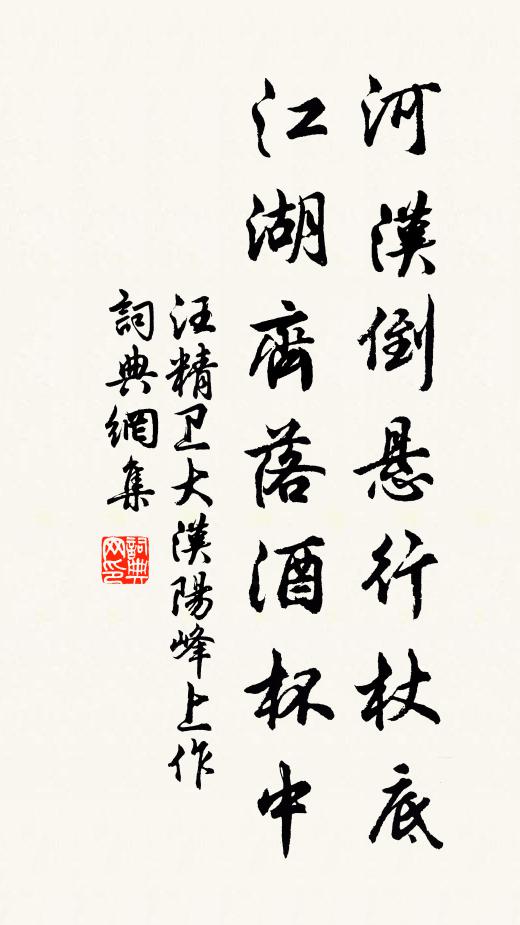 河漢倒悬行杖底
江湖齊落酒杯中
汪精卫大漢陽峰上作
詞典網集
詞典網印